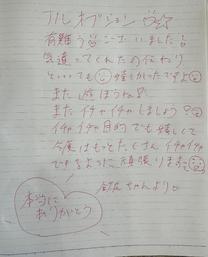 フルオプション
有難うございました!
気遣ってくれたの伝わり
とっても嬉しかったですよ
また遊ぼうね
またイチャイチャしましょう?
イチャイチャ目的でも嬉しくて
今度はもっとたくさんイチャイチャ
できるように頑張ります
ちゃんより♡
本当に
ありがとう